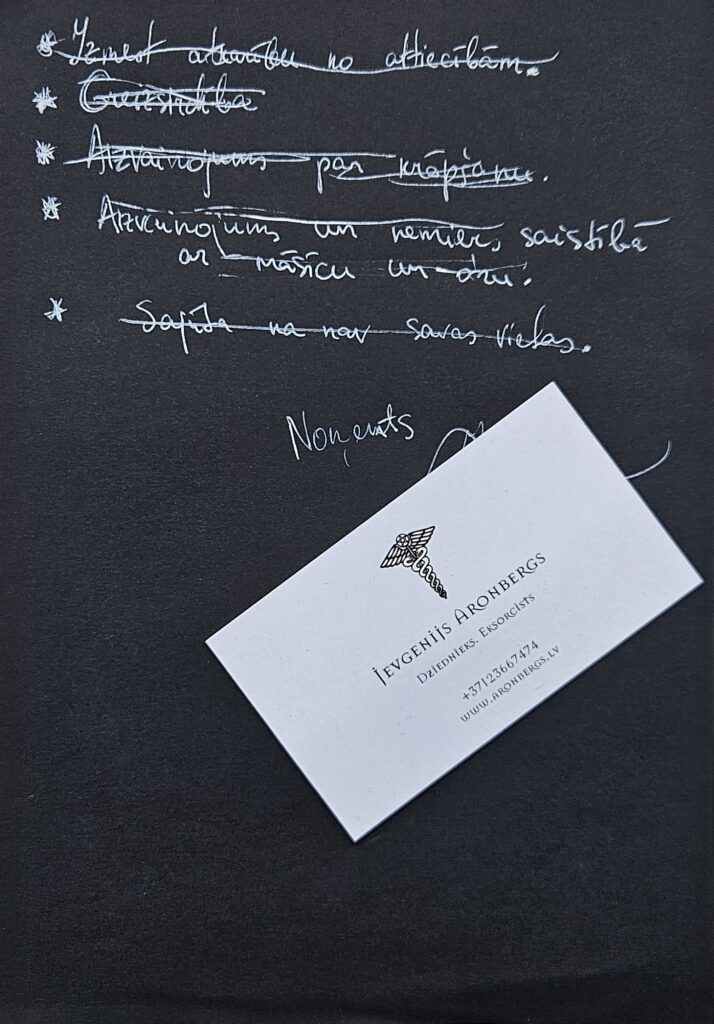 * Izmest atkarību no attiecībām.
* Greizsirdība
* Aizvainojums par krāpšanu.
* Aizvainojums un nemier, saistībā
ar māsīcu un
* Sajūta ka nav savas vietas.
Noņemts
Jevgenijs Aronbergs
Dziednieks. Eksorcists
+37123667474
www.aronbergs.lv